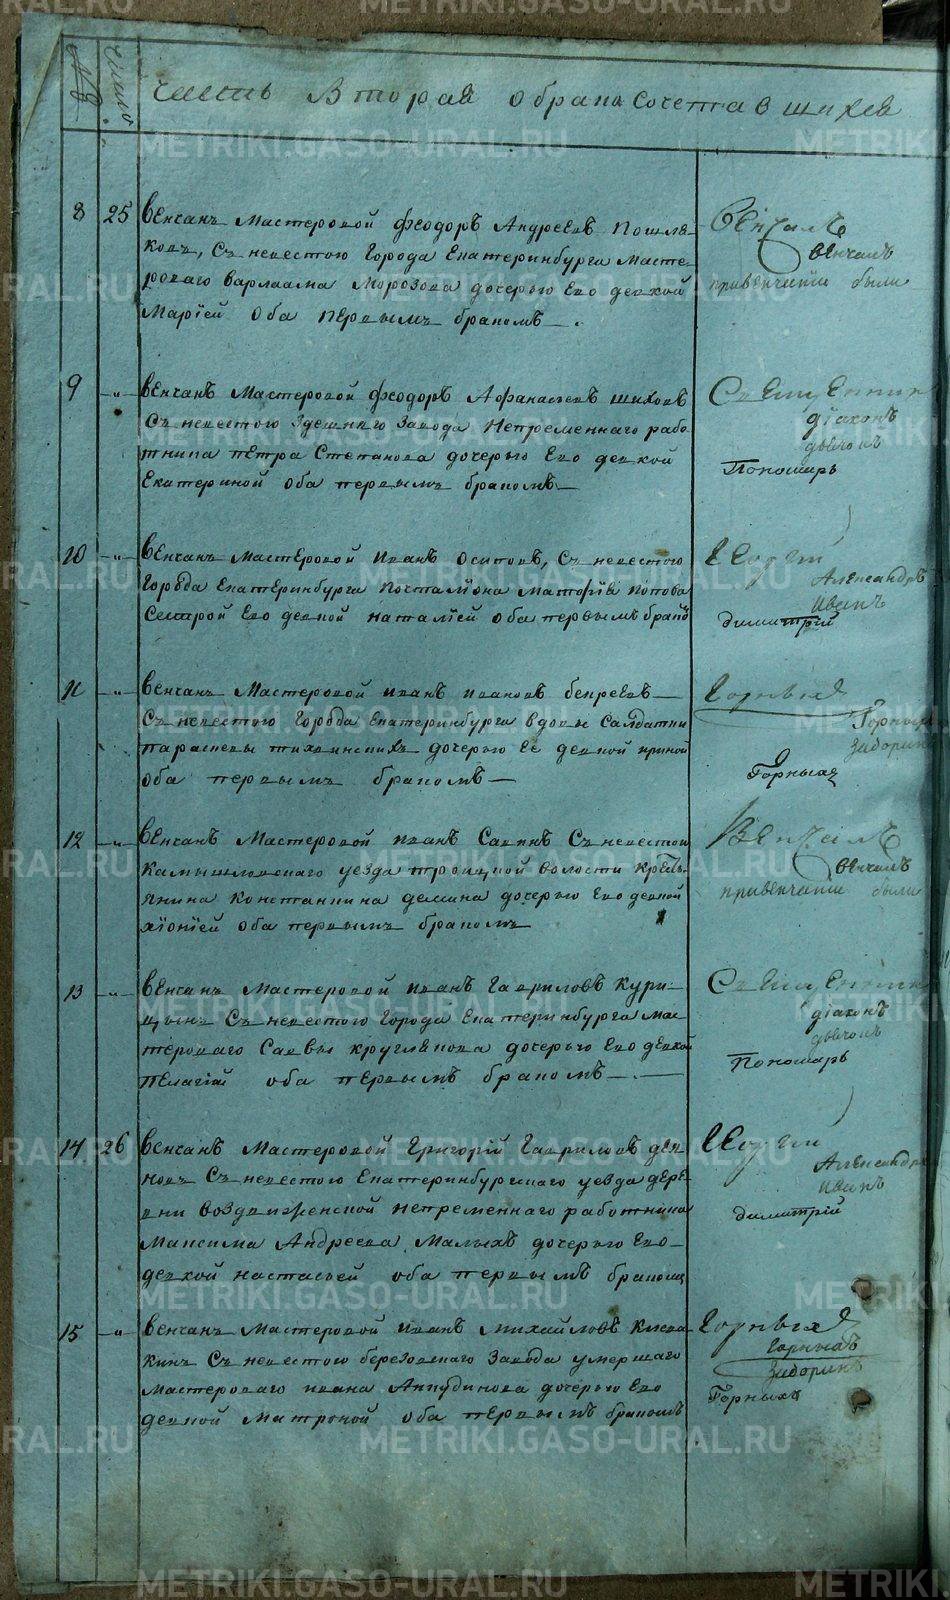 №
число
часть Вторая о бракосочетавшихся
8 25 Венчанъ Мастеровой Феодоръ Андреевъ Пошля-
ковъ, Съ невестою Города Екатеринбурга Масте-
роваго Варлаама Морозова дочерью Его девкой
Маріей Оба первымъ бракомъ.
Венчалъ
венчалъ
привенчании были
9 „ Венчанъ Мастеровой Феодоръ Афанасьевъ
Съ невестою Здешнего Завода Непременнаго рабо
тника Петра Степанова дочерью Его девкой
Екатериной оба первымъ бракомъ
Священник
діаконъ
дьячокъ
Пономарь
10 „ Венчанъ Мастеровой иванъ Осиповъ, Съ невестою
Города Екатеринбурга Почталіона Матфія Попова
Сестрой Его девкой наталіей оба первымъ брако
Георгий
Александръ
Иванъ
димитрій
11 „ Венчанъ Мастеровой иванъ ивановъ
Съ невестою Города Екатеринбурга вдовы Салдатки
парасковы дочерью Ее девкой
оба первымъ бракомъ
Горныхъ
Горных
Заборин
Горныхъ
12 „ Венчанъ Мастеровой иванъ Савинъ Съ невестой
Камышловскаго уезда троицкой волости Кресть-
янина Константина демина дочерью Его девкой
хіоніей оба первымъ бракомъ
Венчалъ
венчалъ
привенчании были
13 „ Венчанъ Мастеровой иванъ Гавриловъ Кури-
цынъ Съ невестою Города Екатеринбурга Мас-
тероваго Саввы круглякова дочерью Его девкой
Пелагіей оба первымъ бракомъ
Священник
діаконъ
дьячокъ
Пономарь
14 26 Венчанъ Мастеровой Григорій Гавриловъ
Съ невестою Екатеринбургскаго уезда дере
вни воздвиженской непременнаго работника
Максима Андреева Малыхъ дочерью Его
девкой настасьей оба первымъ бракомъ
Георгий
Александръ
Иванъ
димитрій
15 „ Венчанъ Мастеровой иванъ Михайловъ Кисва
кинъ Съ невестою березовскаго Завода умершаго
Мастероваго ивана Анкудинова дочерью Его
девкой Матроной оба первымъ бракомъ
Горныхъ
Горныхъ
Заборинъ
Горныхъ
METRIKI.GASO-URAL.RU